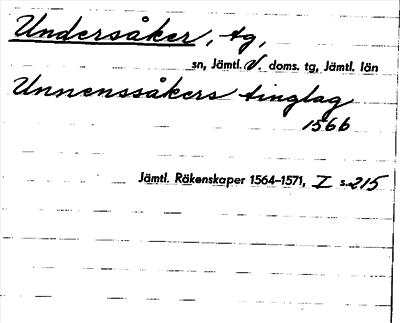 Undersåker, tg,
sn, Jämtl. V. doms. tg, Jämtl. län
Unnenssåkers tinglag
1566
Jämtl. Räkenskaper 1564–1571, I s. 215